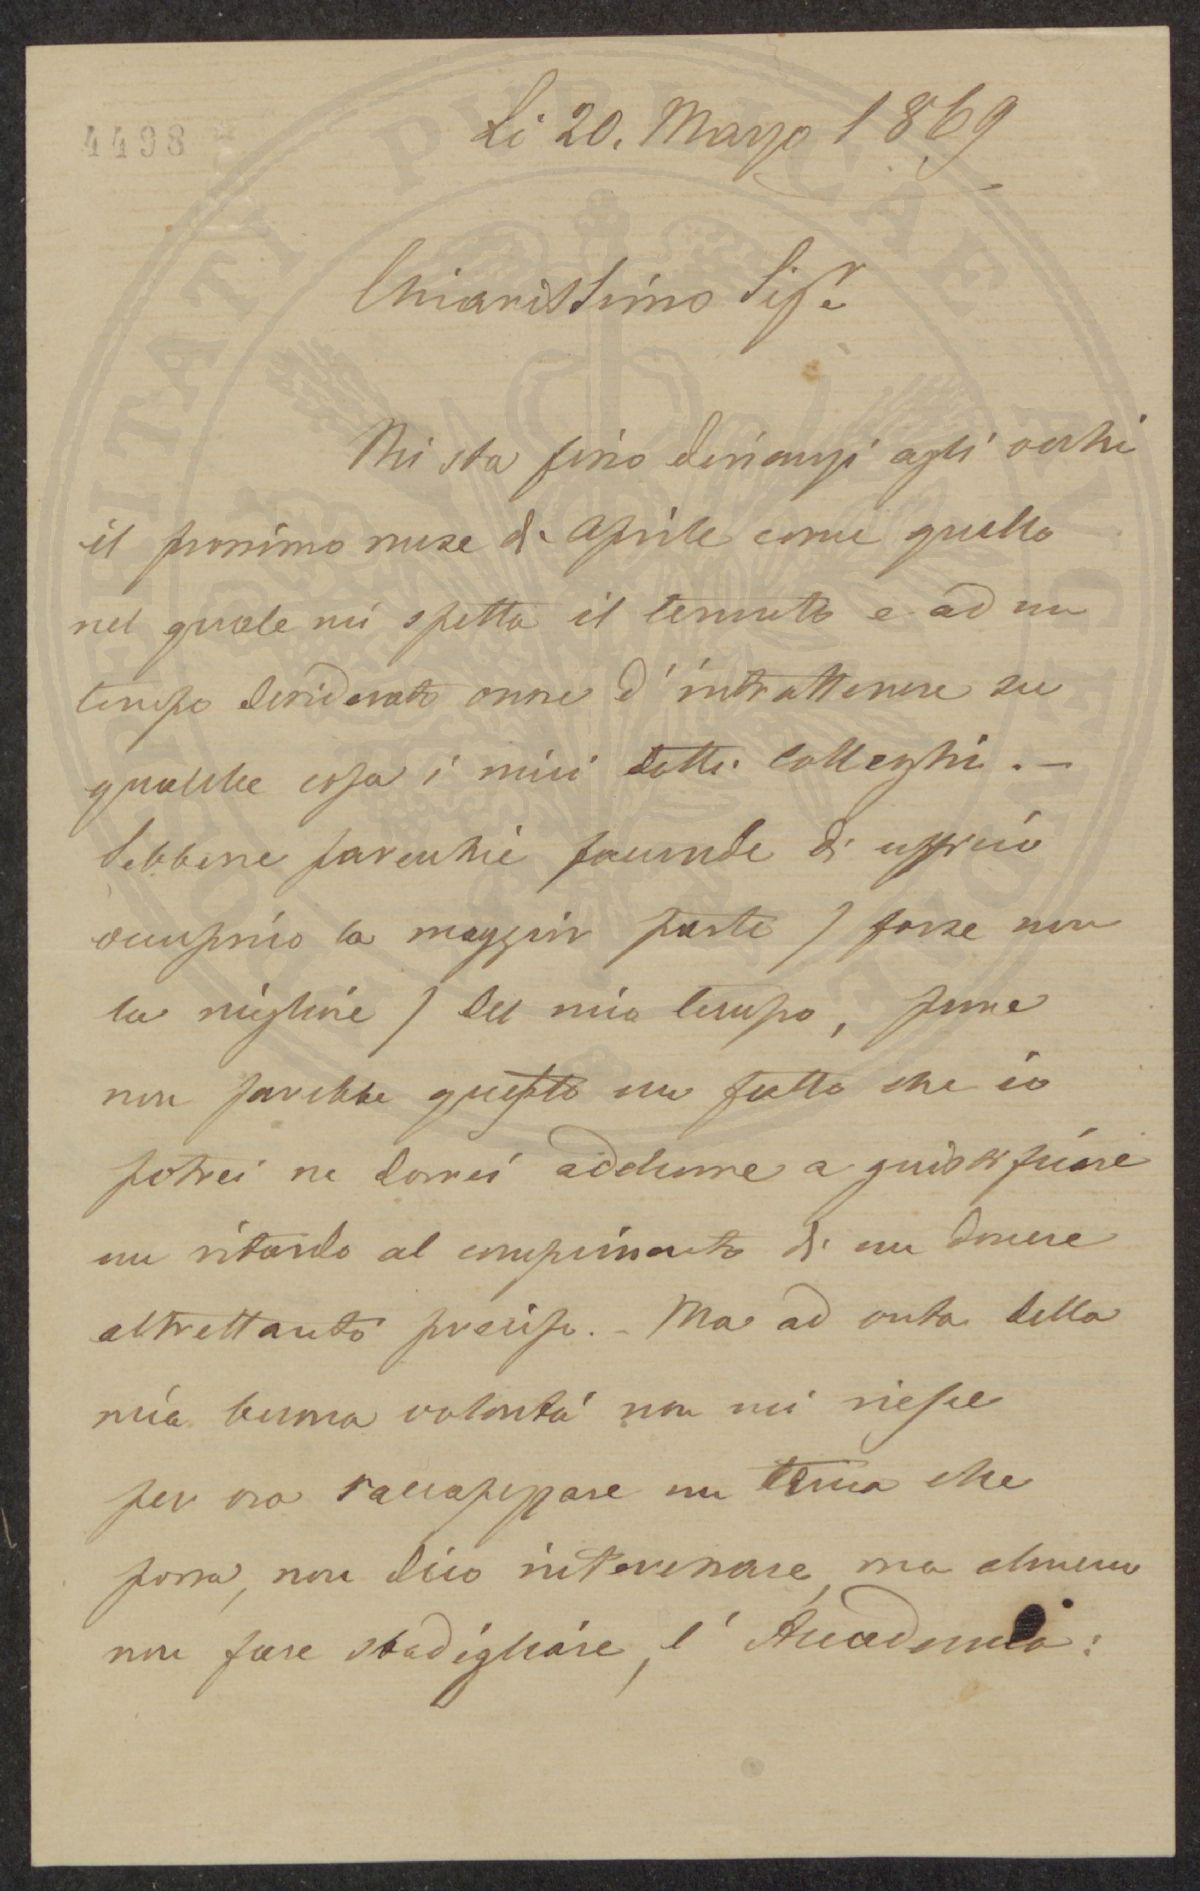 4498
Li 20. Marzo 1869
Chiarissimo Sigr.
Mi sta fino dinanzi agli occhi
il prossimo mese di Aprile come quello
nel quale mi spetta il temuto e ad un
tempo desiderato onore d'intrattenere su
qualche cosa i miei dotti Colleghi. –
Sebbene parecchie faccende di ufficio
occupino la maggior parte / forse non
la migliore / del mio tempo, pure
non sarebbe questo un fatto che io
potrei ne dovrei addurre a giustificare
un ritardo al compimento di un dovere
altrettanto preciso. – Ma ad onta della
mia buona volontà non mi riesce
per ora raccapezzare un tema che
possa, non dico interessare, ma almeno
non fare sbadigliare, l'Accademia:
POMERITATI PUBLICAE AC